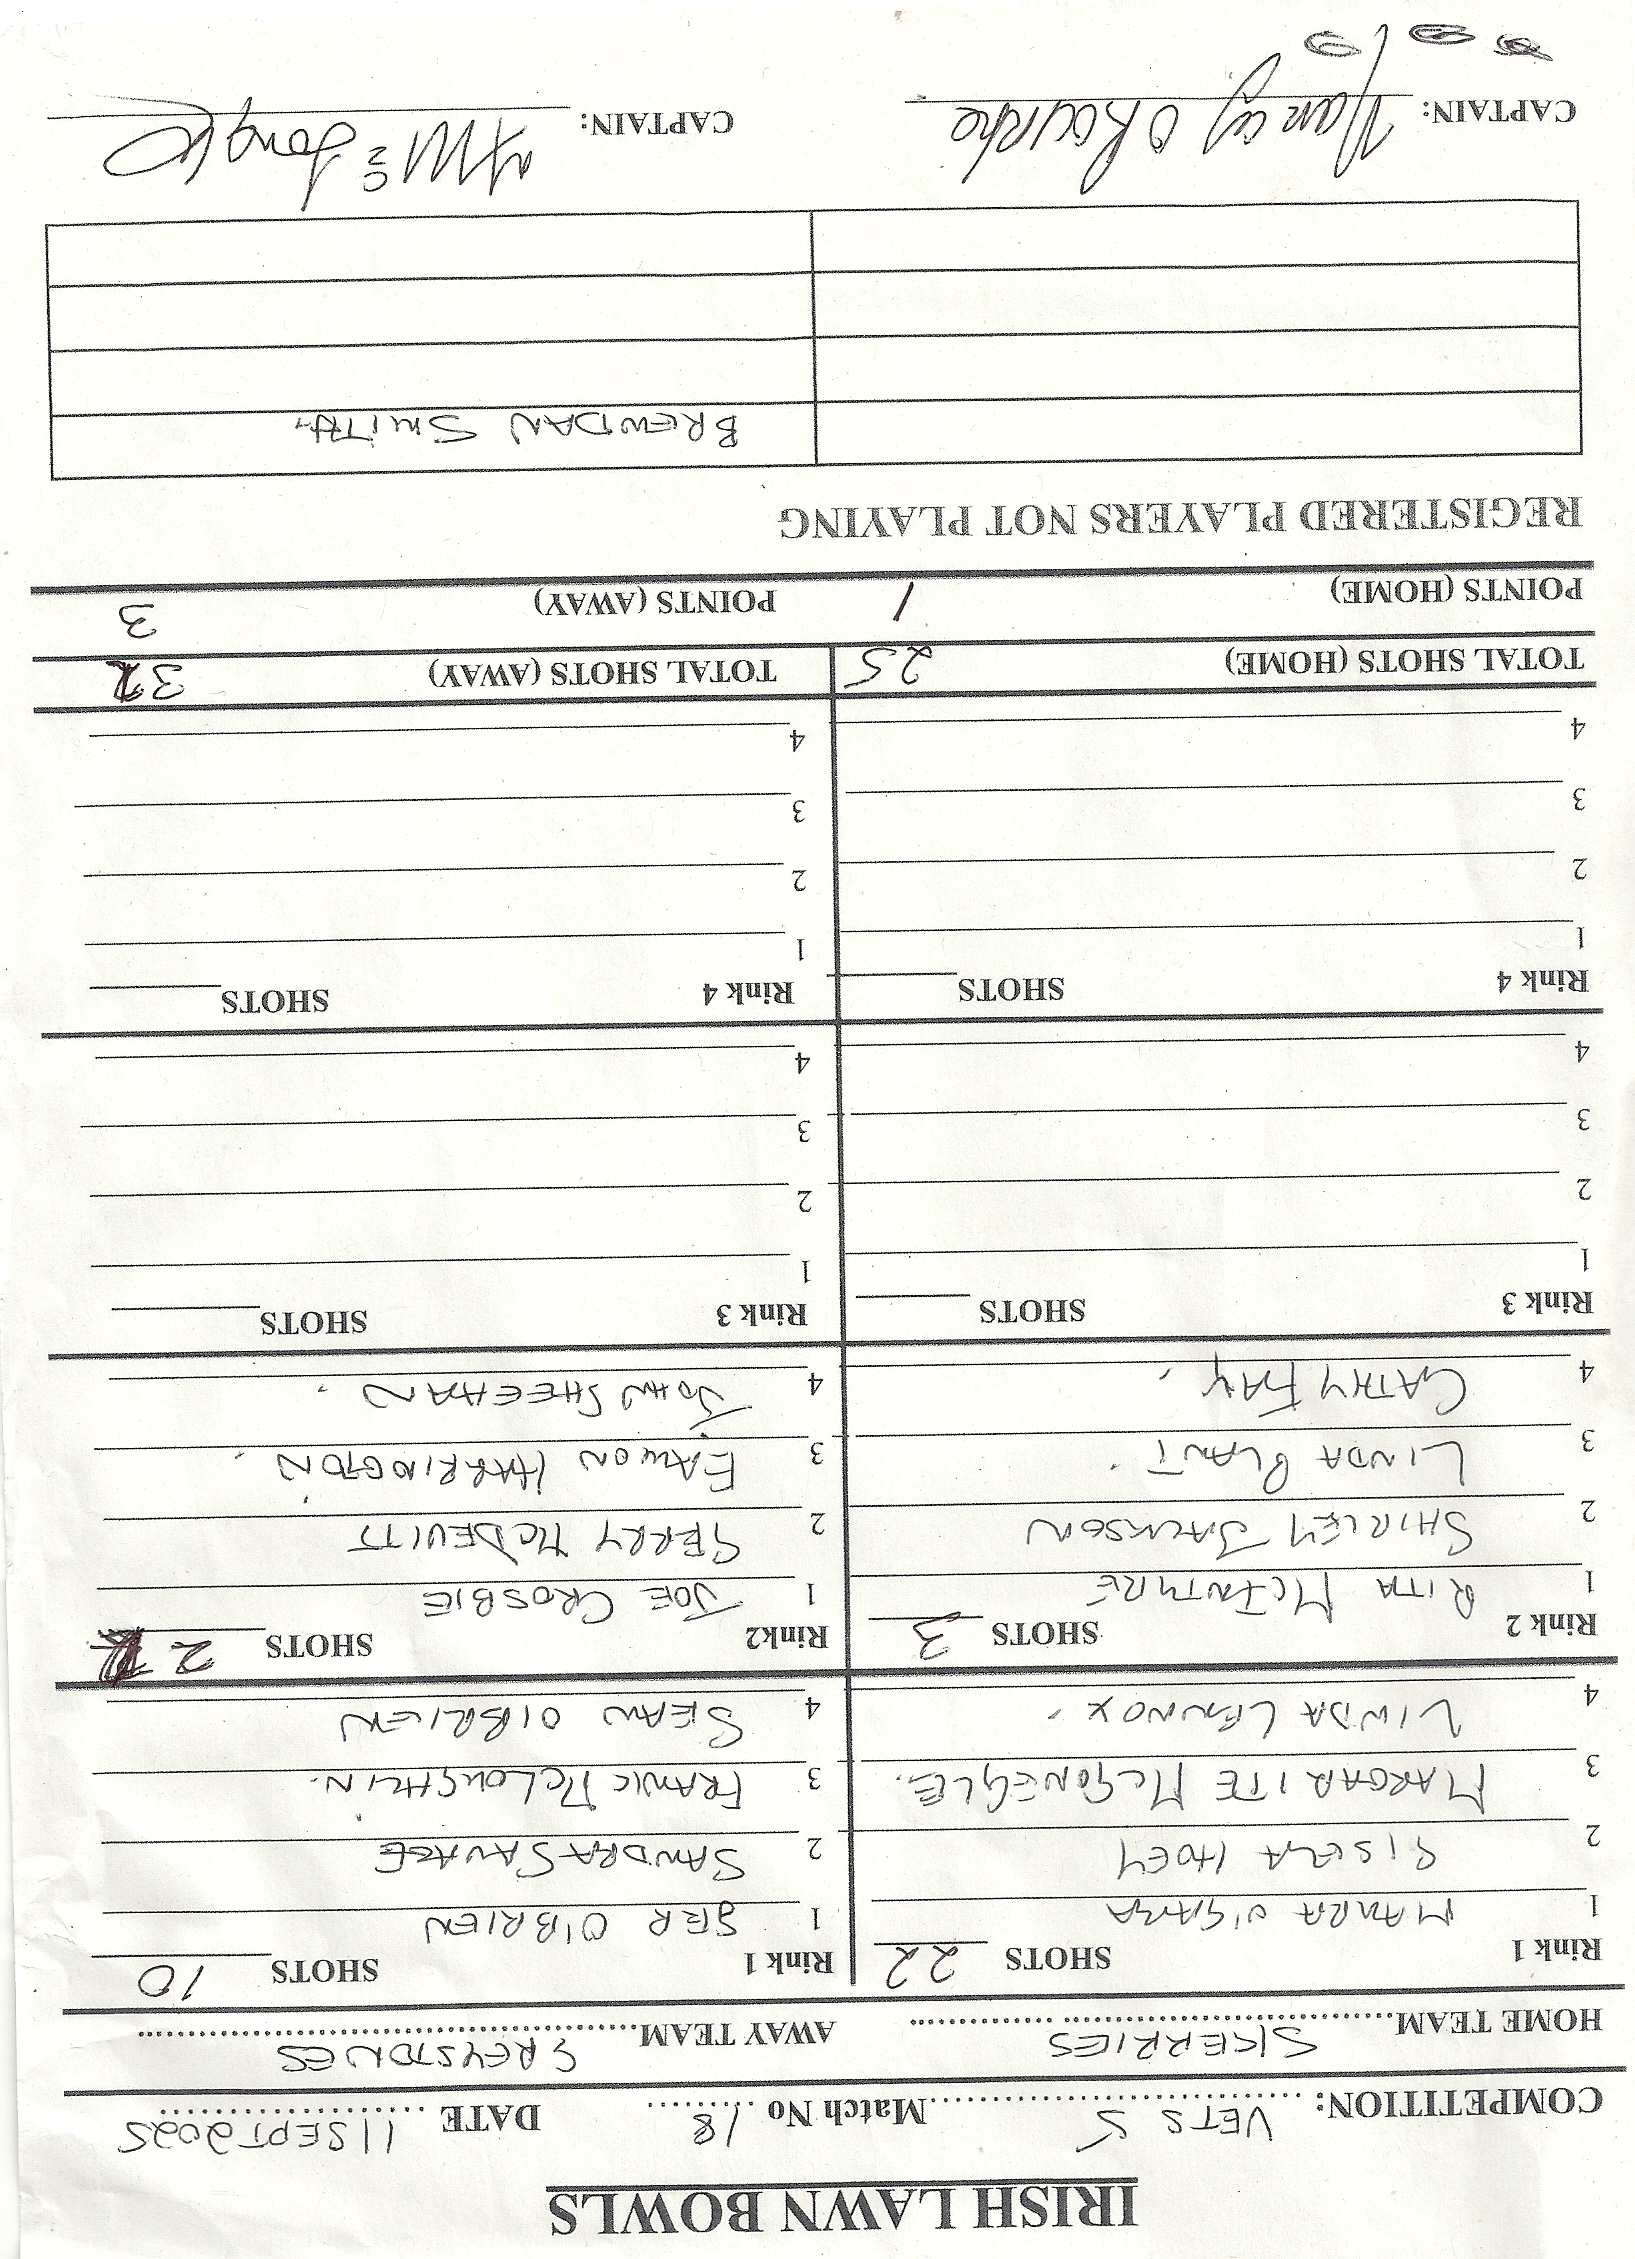 IRISH LAWN BOWLS
COMPETITION: VETS 5 Match No 18 DATE 11 SEPT 2025
HOME TEAM SKERRIES AWAY TEAM GREYSTONES
Rink 1 SHOTS 22 Rink 1 SHOTS 10
1 MAURA O'GARA 1 GER O'BRIEN
2 GISELA HOEY 2 SANDRA SAVAGE
3 MARGARITE MCGONEGLE. 3 FRANK MCLOUGHLIN.
4 LINDA LENNOX. 4 SEAN O'BRIEN
Rink 2 SHOTS 3 Rink2 SHOTS 22
1 RITA MCINTYRE 1 JOE CROSBIE
2 SHIRLEY JACKSON 2 GERRY MCDEVITT
3 LINDA BLANT. 3 EAMON HARRINGTON.
4 CATHY FAY. 4 JOHN SHEEHAN.
Rink 3 SHOTS Rink 3 SHOTS
1 1
2 2
3 3
4 4
Rink 4 SHOTS Rink 4 SHOTS
1 1
2 2
3 3
4 4
TOTAL SHOTS (HOME) 25 TOTAL SHOTS (AWAY) 32
POINTS (HOME) 1 POINTS (AWAY) 3
REGISTERED PLAYERS NOT PLAYING
BRENDAN SMITH.
CAPTAIN: Nancy ORourke CAPTAIN: